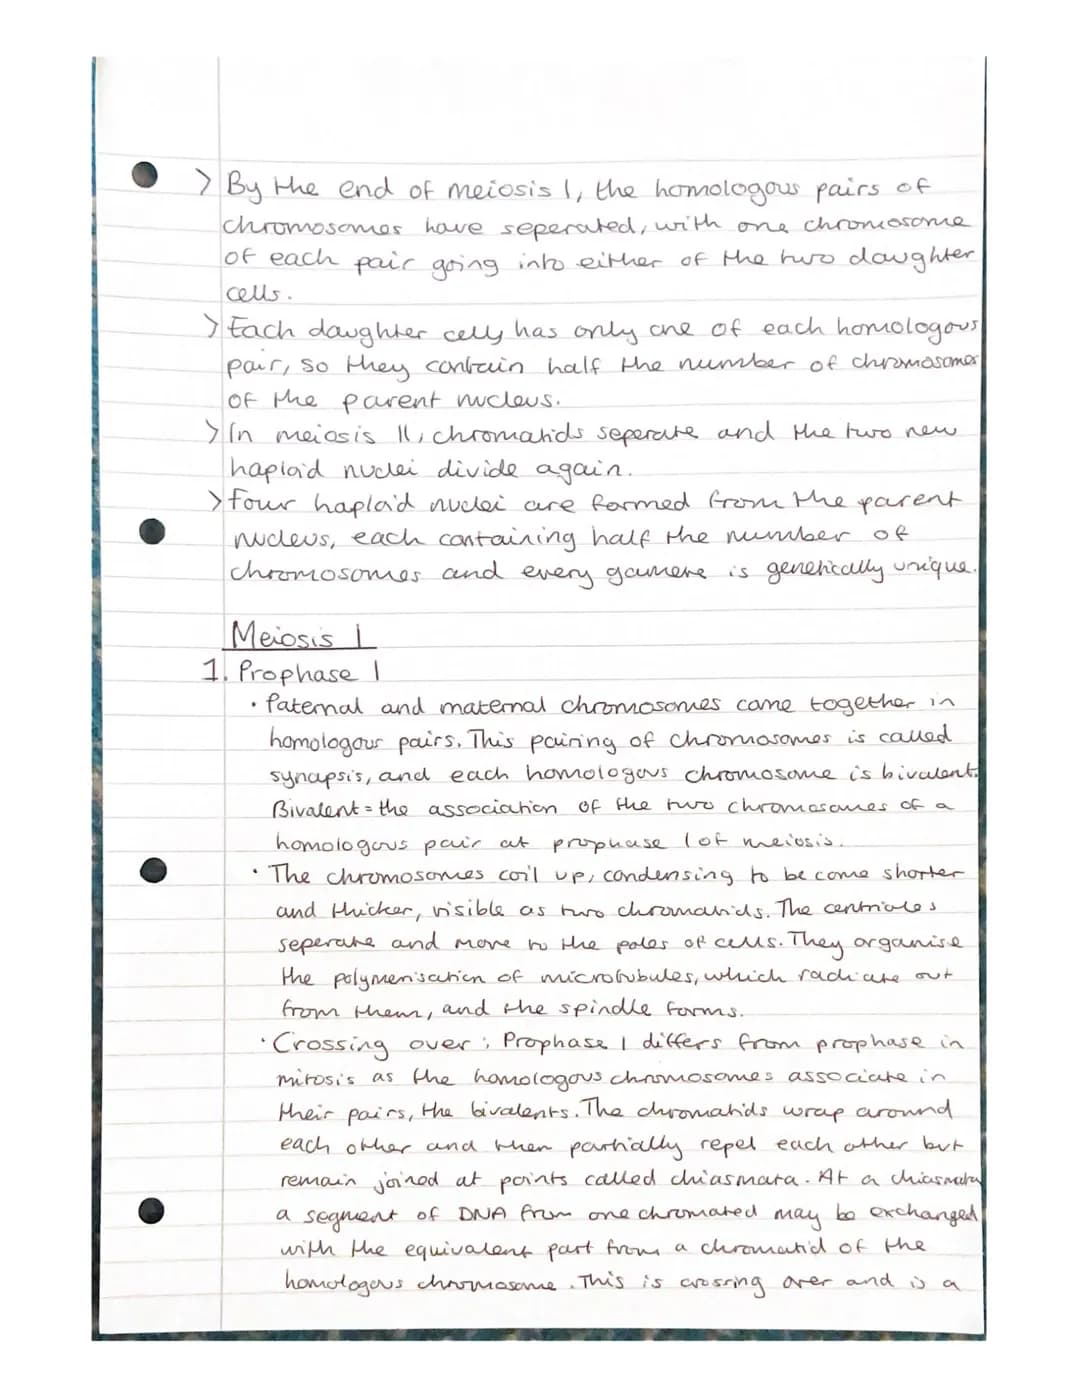 > By the end of meiosis I, the homologous pairs of
chromosomes have seperated, with one chromosome
of each pair going into either of the two daughter
cells.
> Each daughter celly has only one of each homologous
pair, so they contain half the number of chromosomes
of the parent nucleus.
> In meiosis II, chromatids seperate and the two new
haploid nuclei divide again.
> Four haploid nuclei are formed from the parent
nucleus, each containing half the number of
chromosomes and every gamete is genetically unique.
Meiosis I
1. Prophase I
• Paternal and maternal chromosomes come together in
homologous pairs. This pairing of chromosomes is called
synapsis, and each homologous chromosome is bivalent.
Bivalent = the association of the two chromosomes of a
homologous pair at prophase I of meiosis.
• The chromosomes coil up, condensing to become shorter
and thicker, visible as two chromatids. The centrioles
seperate and move to the poles of cells. They organise
the polymerisation of microtubules, which radiate out
from them, and the spindle forms.
• Crossing over: Prophase I differs from prophase in
mitosis as the homologous chromosomes associate in
their pairs, the bivalents. The chromatids wrap around
each other and then partially repel each other but
remain joined at points called chiasmata. At a chiasmata
a segment of DNA from one chromated may be exchanged
with the equivalent part from a chromatid of the
homologous chromosome. This is crossing over and is a